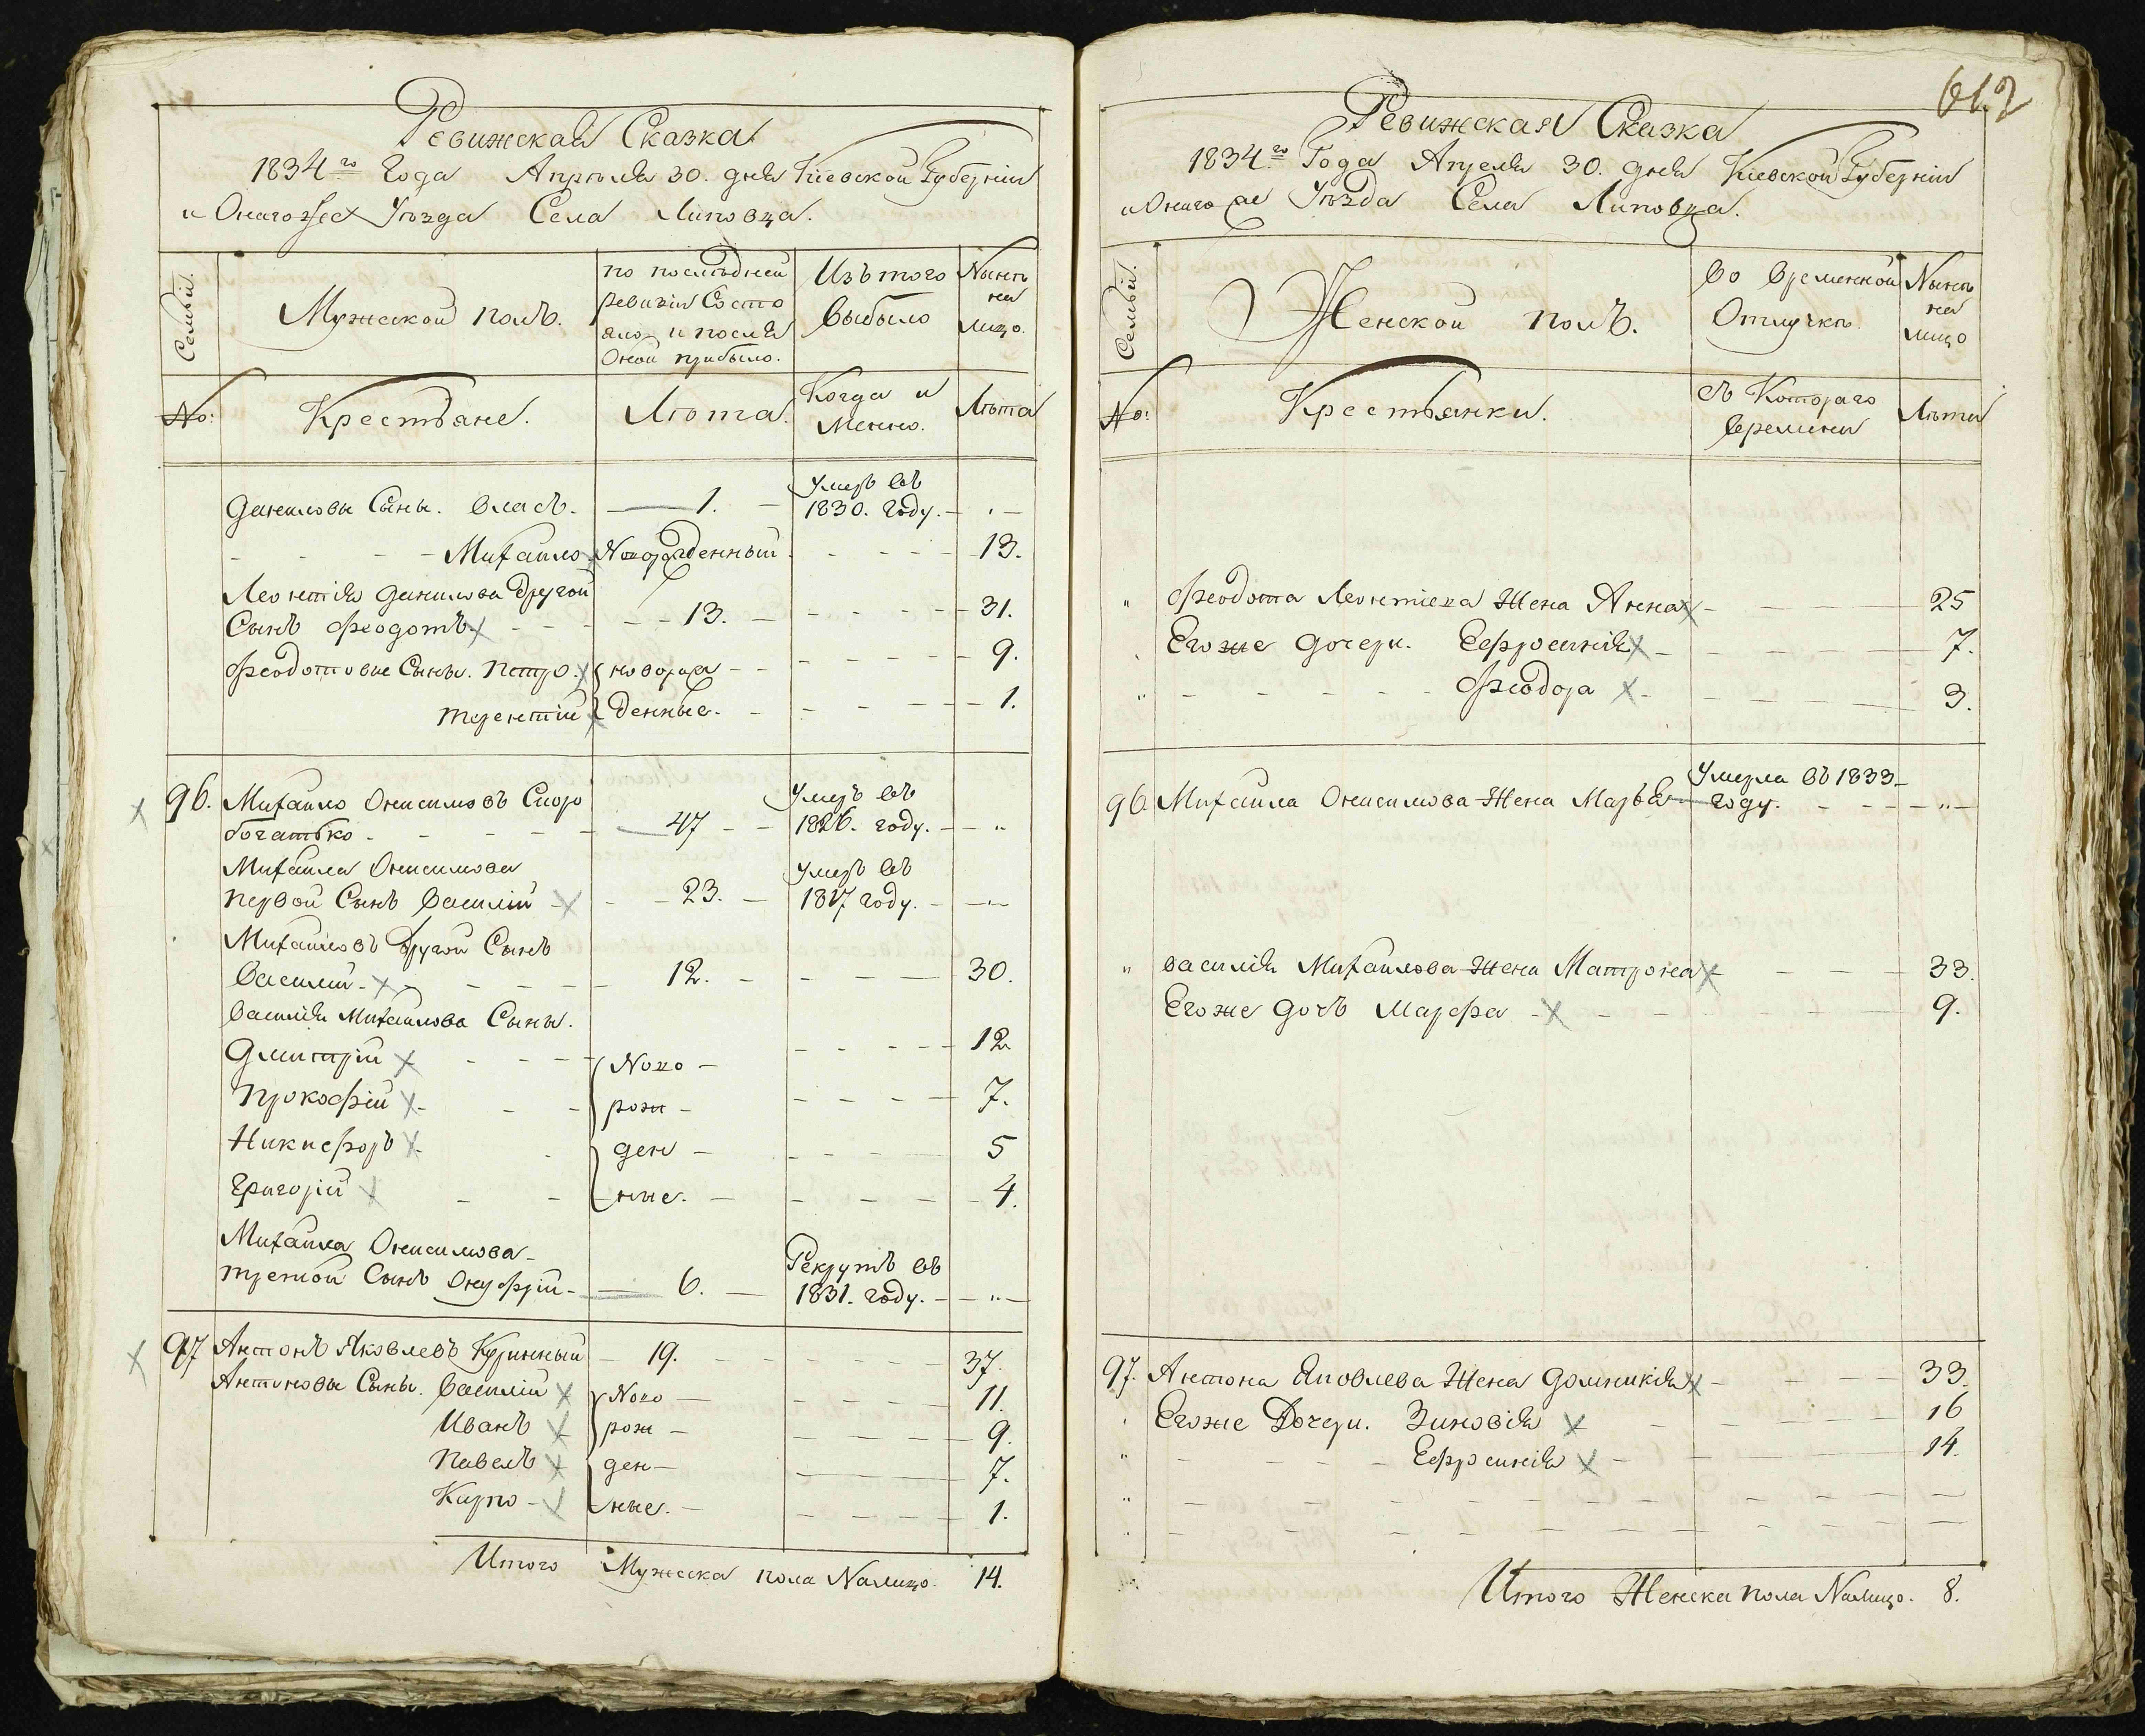 Ревижская Сказка
1834го Года Апреля 30. дня Киевской Губернии
и Онагоже Уезда Села Липовца.
Семьи.
Мужеской полъ.
по последней
ревизіи Состо
яло, и после
Оной прибыло.
Изъ того
выбыло
Ныне
на
лицо.
No:
Крестьяне.
Лета.
Когда и
Менно.
Лета
Даниловы Сыны. Власъ. 1. Умеръ въ
1830. году.
Михайло Новорожденный 13.
Леонтія Данилова другой
Сынъ Феодотъ 13. 31.
Феодотовые Сыны. Петро. новорож 9.
Терентій денные. 1.
96. Михайло Онисимовъ Скоро
богатько 47 Умеръ въ
1826. году.
Михайла Онисимова
первой Сынъ Василій 23. Умеръ въ
1817 году.
Михайловъ другой Сынъ
Василій 12. 30.
Василія Михайлова Сыны.
Дмитрій Ново 12.
Прокофій рож 7.
Никифоръ ден 5
Григорій ные. 4.
Михайла Онисимова
третой Сынъ Онуфрій 6. Рекрутъ въ
1831. году.
97 Антонъ Яковлевъ Куринный 19. 37.
Антоновы Сыны. Василій Ново 11.
Иванъ рож 9.
Павелъ ден 7.
Кирпо ные. 1.
Итого Мужеска пола Налицо. 14.
612
Ревижская Сказка
1834го Года Апреля 30. дня Киевской Губернии
и Онаго же Уезда Села Липовца.
Семьи.
Женской полъ.
Во временной
Отлучке
Ныне
на
лицо
No:
Крестьянки.
съ Котораго
времени
Лета
" Феодота Леонтіева Жена Анна 25
Егоже дочери. Ефросинія 7.
" Феодора 3.
96 Михайла Онисимова Жена Марья Умерла въ 1833
году.
" Василія Михайлова Жена Матрона 33.
Егоже дочь Марфа 9.
97. Антона Яковлева Жена Домникія 33.
Егоже Дочери. Зиновія 16
" Ефросинія 14.
Итого Женска пола Налицо. 8.